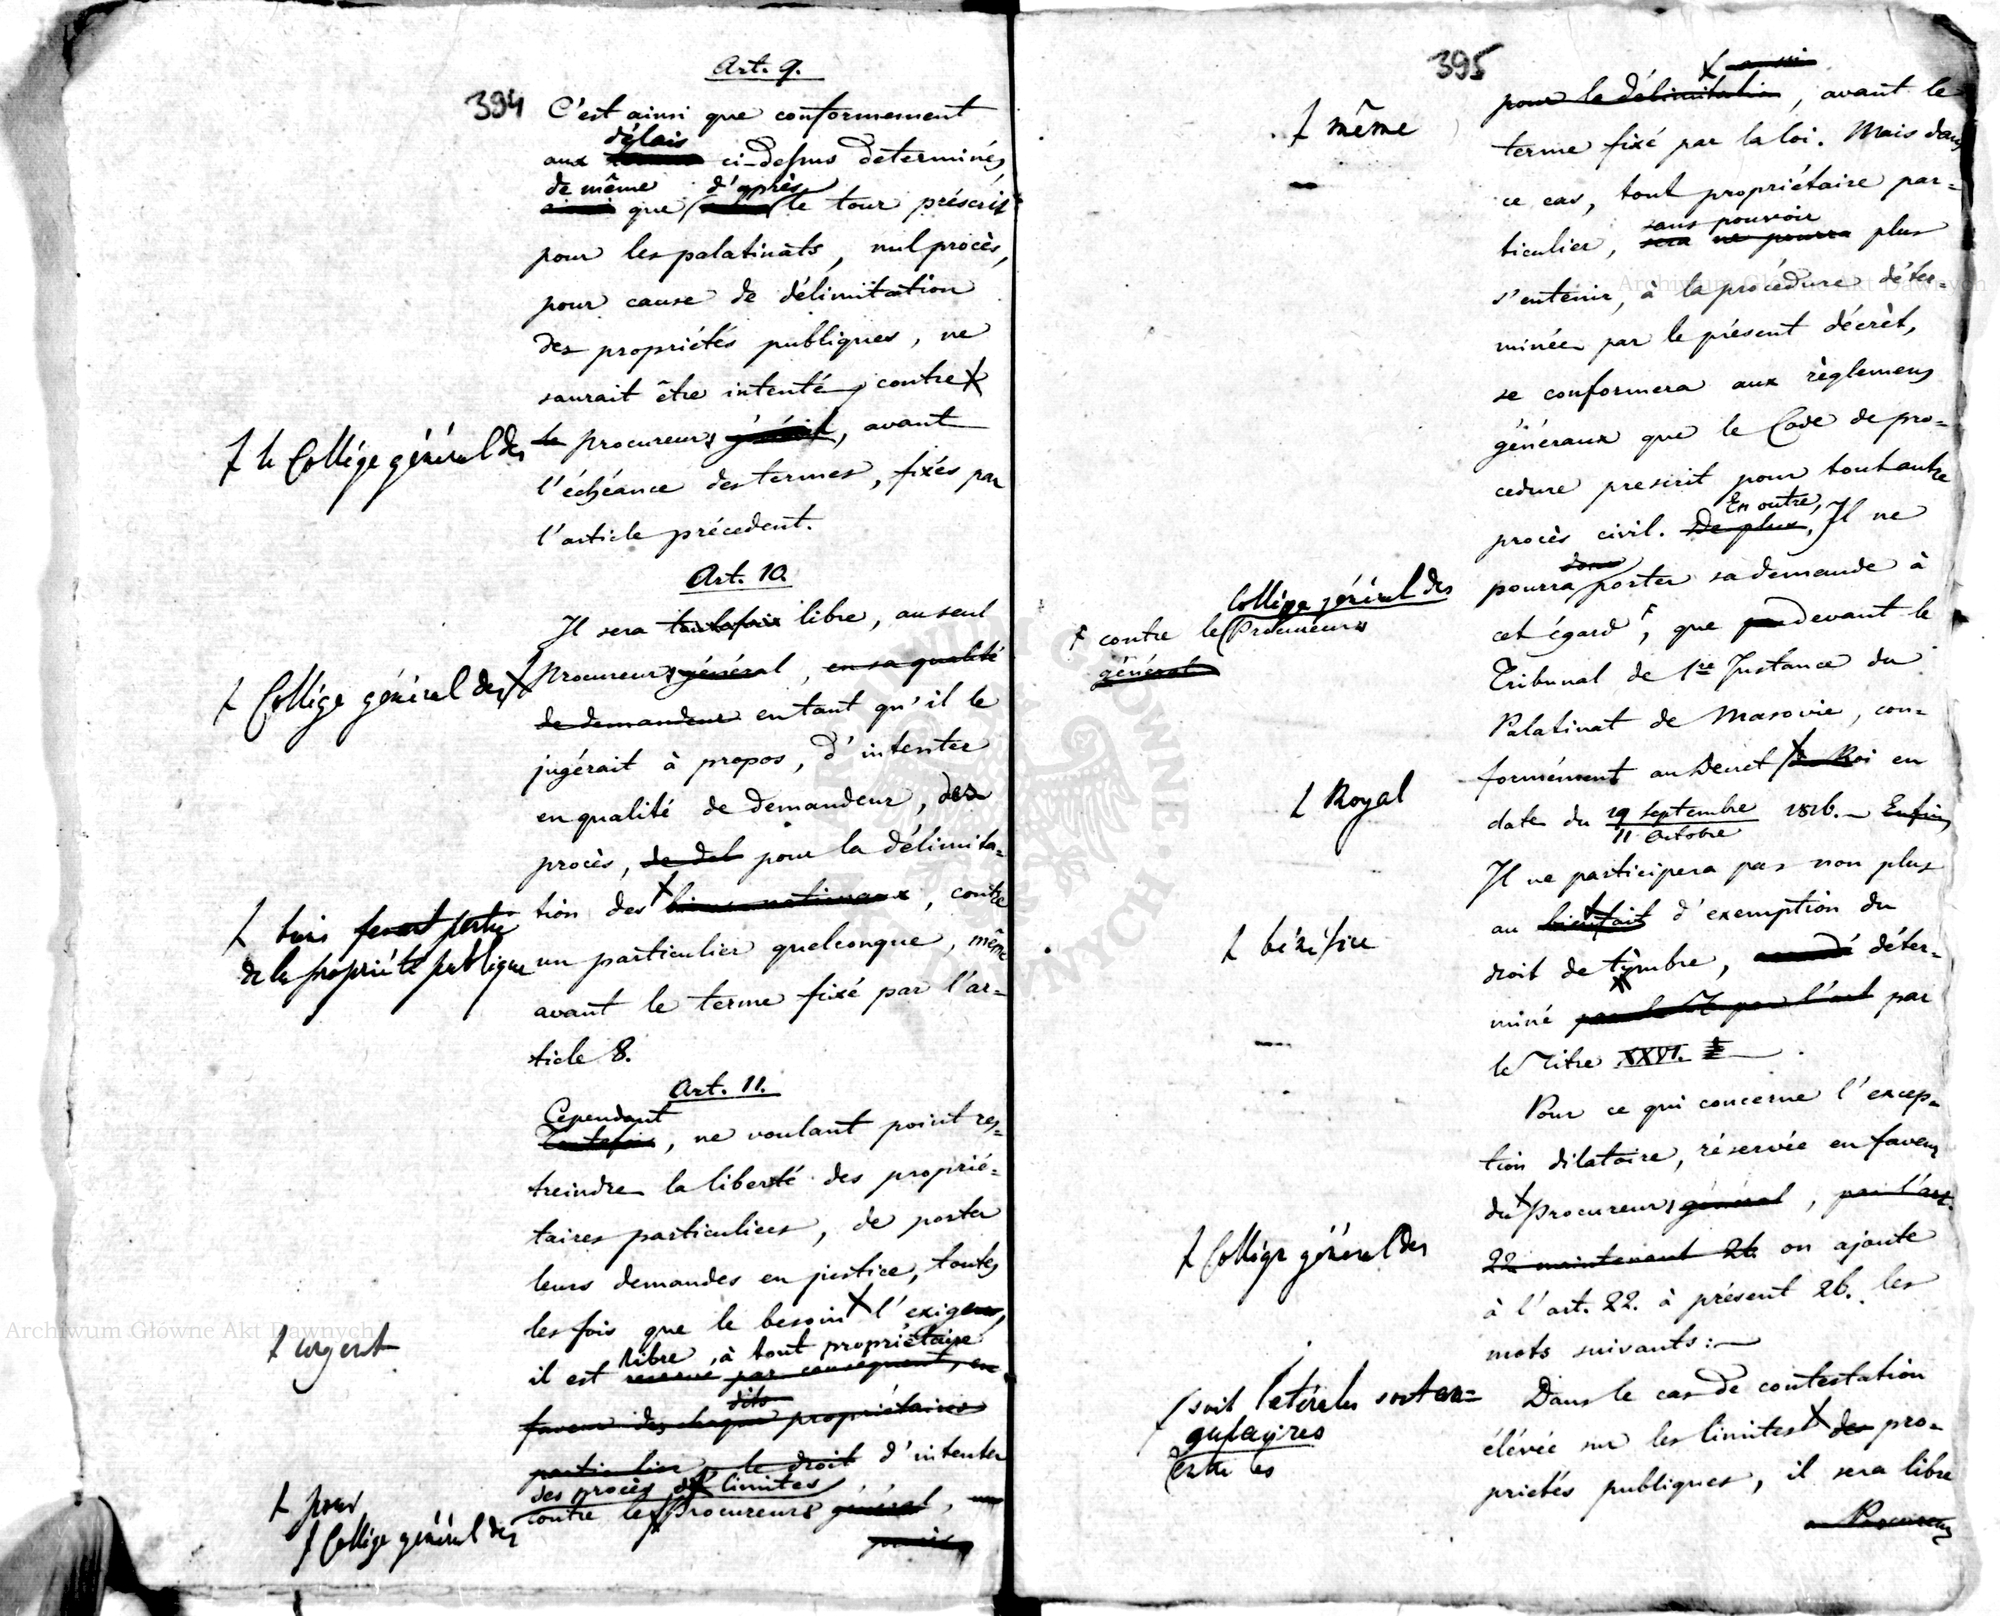 394
Art. 9.
C'est ainsi que conformement
délais
aux ci-dessus determinés
de même d'après
ainsi que le tour préscrit
pour les palatinats, nul procès,
pour cause de délimitation
des propriétés publiques, ne
saurait être intenté, contre
⨍ le Collége général des
le procureurs général, avant
l'échéance des termes, fixés par
l'article précedent.
Art. 10.
Il sera toutefois libre, au seul
⨍ Collége général des
Procureurs général, en sa qualité
de demandeur en tant qu'il le
jugérait à propos, d'intenter
en qualité de demandeur, des
procès, de del pour la délimita=
tion des biens nationaux, contre
⨍ biens fesant partie
de la propriété publique
un particulier quelconque, même
avant le terme fixé par l'ar=
ticle 8.
Art. 11.
Cependant
Toutefois, ne voulant point res=
treindre la liberté des proprié=
taires particuliers, de porter
leurs demandes en justice, toutes
les fois que le besoin l'exigera,
⨍ urgent
libre, à tout propriétaire
il est reservé par conséquent, en
dits
faveur des chaque propriétaires
particulier, le droit d'intenter
des procès de limites
⨍ pour
contre le Procureurs général,
⨍ Collége général des
395
aussi
pour le délimitation, avant le
⨍ même
terme fixé par la loi. Mais dans
ce cas, tout propriétaire par=
sans pouvoir
ticulier, sera ne pourra plus
s'entenir, à la procédure déter=
minée par le présent décrèt,
se conformera aux règlemens
généraux que le Code de pro=
cedure prescrit pour tout autre
En outre,
procès civil. De plus, Il ne
donc
pourra porter sa demande à
Collége général des
⨍ contre le Procureurs
général
cet égard, que par devant le
Tribunal de 1re Instance du
Palatinat de Masovie, con=
formément au Decret du Roi en
⨍ Royal
date du 29 septembre 1816. Enfin,
11 Octobre
Il ne participera pas non plus
au bienfait d'exemption du
⨍ bénéfice
droit de timbre, déter=
miné par l'art par
le Titre XXVI.
Pour ce qui concerne l'excep=
tion dilatoire, réservée en faveur
du Procureurs général, par l'art.
⨍ Collége général des
22 maintenant 26 on ajoute
à l'art. 22. à présent 26. les
mots suivants:
Dans le cas de contestation
⨍ soit latérales soit an=
gulaires
entre les
élévée sur les limites des pro=
prietés publiques, il sera libre
Procureur
Archiwum Główne Akt Dawnych
Archiwum Główne Akt Dawnych